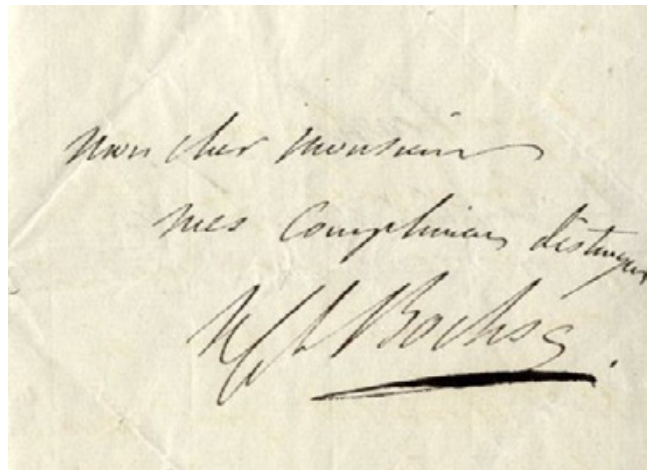 Mon cher Monsieur
mes Complimens distingués
N Ch Bochsa.